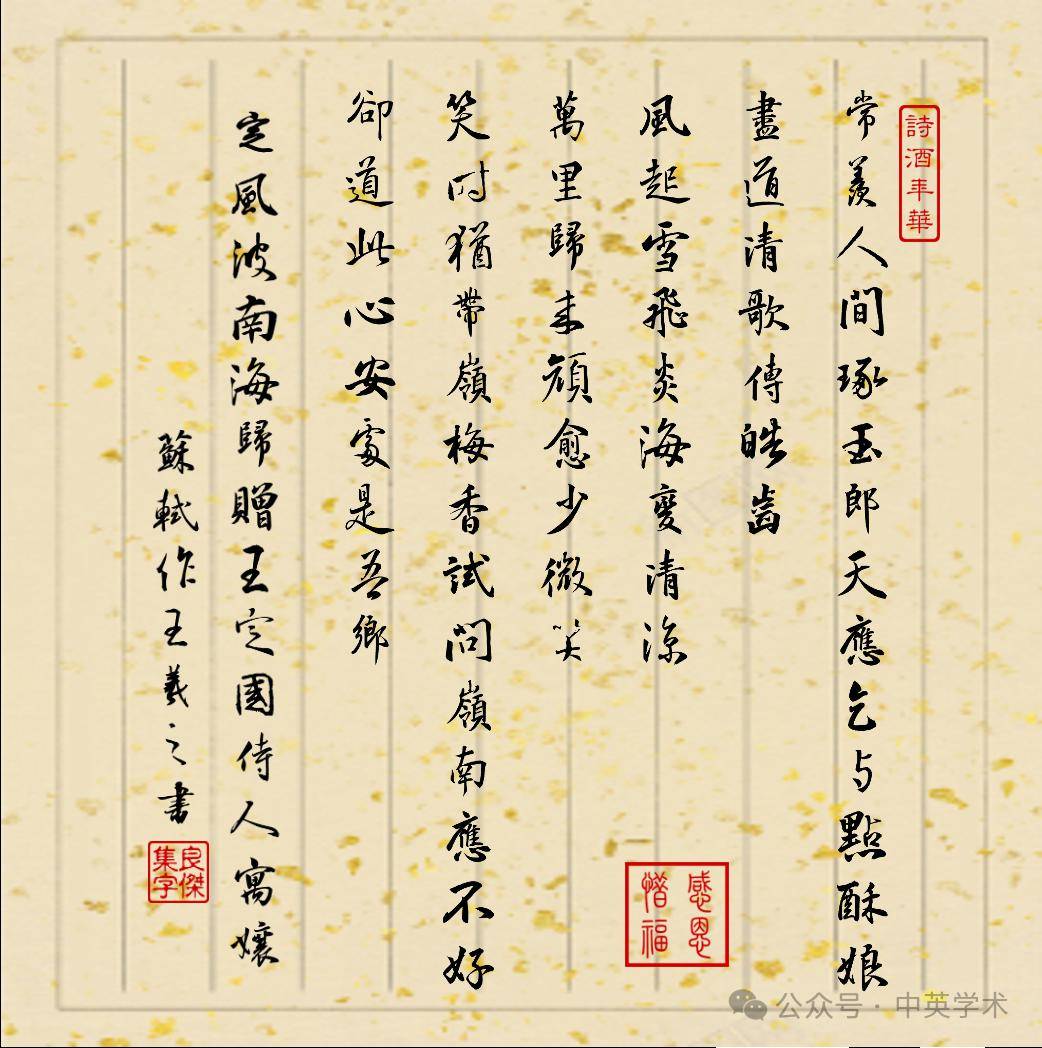 詩酒年華
常羨人間琢玉郎天應乞与點酥娘
盡道清歌傳皓齒
風起雪飛炎海變清涼
萬里歸來顔愈少微笑
笑時猶帶嶺梅香試問嶺南應不好
卻道此心安處是吾鄉
定風波南海歸贈王定國侍人寓孃
蘇軾作王羲之書
良傑集字
感恩惜福
公众号 · 中英学术